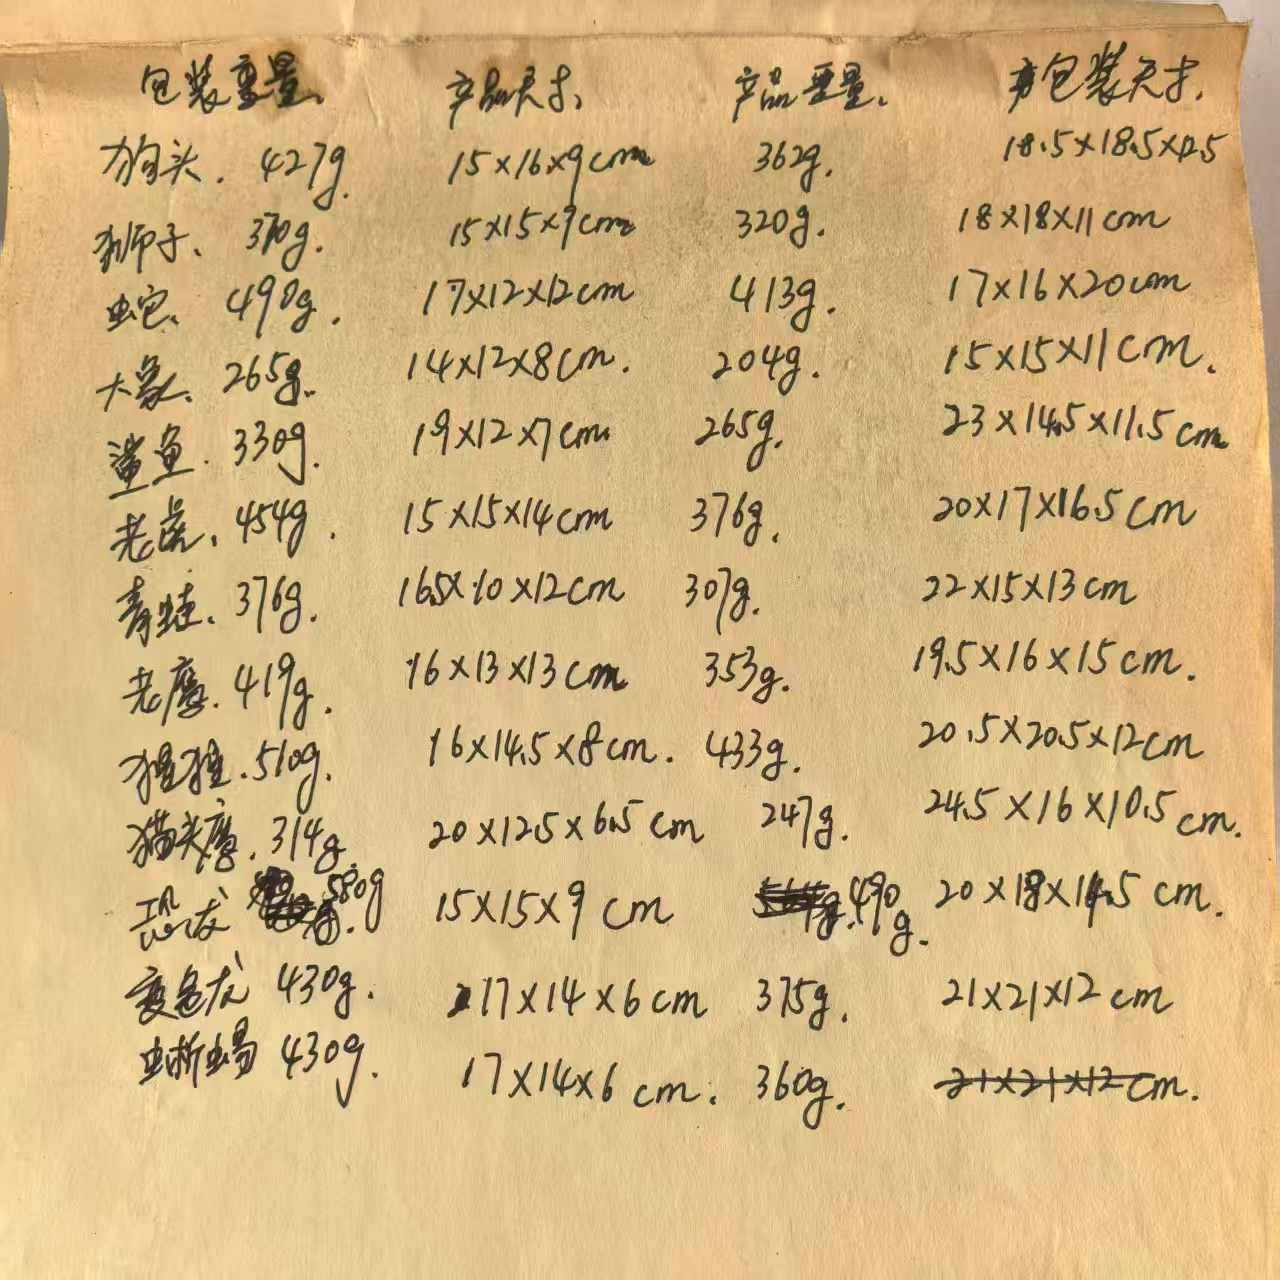 包装重量、 产品尺寸、 产品重量、 包装尺寸、
狗头. 427g. 15×16×9cm 362g. 18.5×18.5×
狮子、 370g. 15×15×9cm 320g. 18×18×11cm
蛇、 490g. 17×12×12cm 413g. 17×16×20cm
大象、 265g. 14×12×8cm. 204g. 15×15×11cm.
鲨鱼. 330g. 19×12×7cm 265g. 23×14.5×11.5cm
老虎、 454g. 15×15×14cm 376g. 20×17×16.5cm
青蛙. 376g. 16.5×10×12cm 307g. 22×15×13cm
老鹰. 419g. 16×13×13cm 353g. 19.5×16×15cm.
猩猩. 510g. 16×14.5×8cm. 433g. 20.5×20.5×12cm
猫头鹰. 314g 20×12.5×6.5cm 247g. 24.5×16×10.5cm.
恐龙 580g 15×15×9cm 490g. 20×18×14.5cm.
变色龙 430g. 17×14×6cm 375g. 21×21×12cm
蜥蜴 430g. 17×14×6cm. 360g. 21×21×12cm.